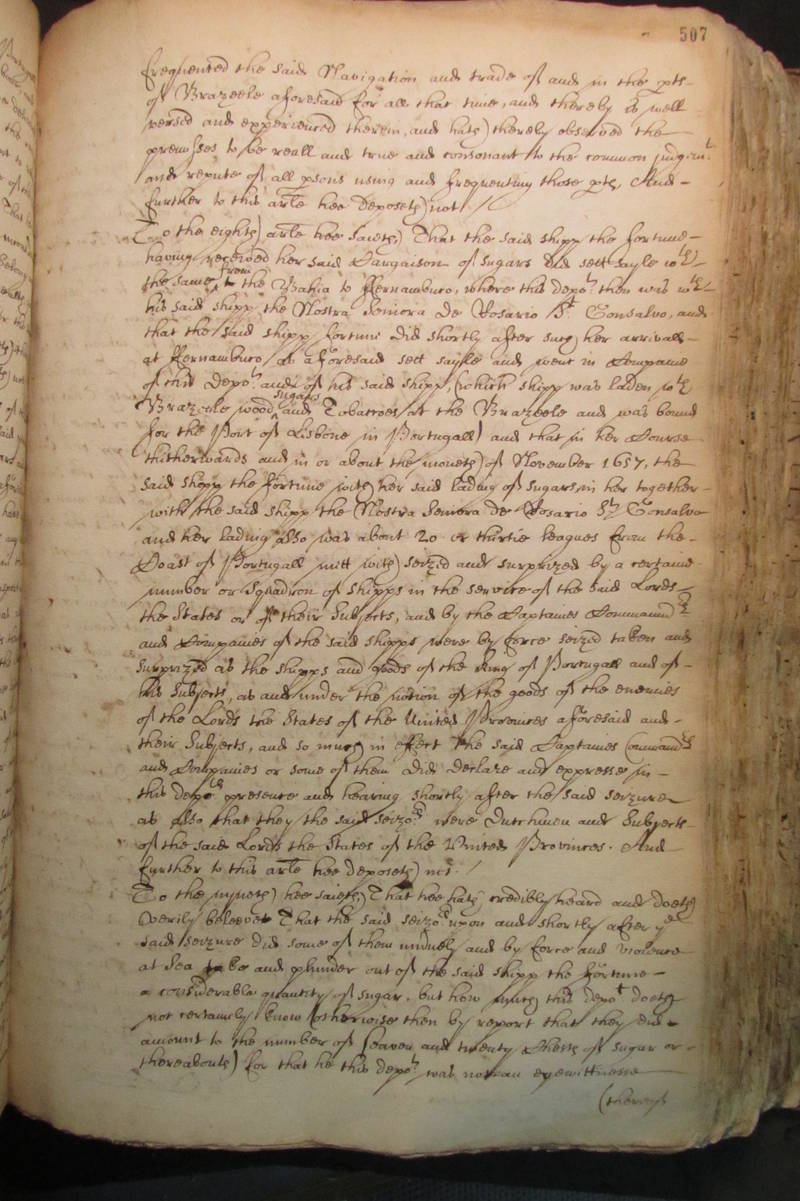 507
frequented the said Navigation and trade of and in the pts
of Brazeele aforesaid for all that time, and thereby is well
versed and experienced therein, and hath thereby observed the
premisses to be reall and true and consonant to the common judgmt
and repute of all psons using and frequenting those pts, And
further to this arle hee deposeth not /
To the eighth arle hee saieth, That the said shipp the fortune
having received her said Cargaison of sugars did sett sayle wth
the same from the Bahia to Fernamburo, where this depot then was wth
his said shipp the Nostra Senora de Rosario St Gonsalvo, and
that the said shipp fortune did shortly after such her arrivall
at Fernamburo as aforesaid sett sayle and went in Companie
of this Depot and of his said shipp, (which shipp was laden wth
Brazeele wood sugars and Tobaccoes at the Brazeele and was bound
for the Port of Lisbone in Portugall) and that in her Course
thitherwards and in or about the moneth of November 1657, the
said shipp the fortune with her said lading of sugars in her together
with the said shipp the Nostra Senora de Rosario St Gonsalvo
and her lading also was about 20 or thirtie leagues from the
Coast of Portugall mett with seized and surprized by a certaine
number or Squadron of shipps in the service of the said Lords
the States or of their Subjects, and by the Captaines Commandrs
and Companies of the said shipps were by force seized taken and
surprized as the shipps and goods of the King of Portugall and of
his Subjects, as and under the notion of the goods of the enemies
of the Lords the States of the United Provinces aforesaid and
their Subjects, and so much in effect the said Captaines Commandrs
and Companies or some of them did declare and expresse in
this depots presence and hearing shortly after the said seizure
as also that they the said seizors were Dutchmen and Subjects
of the said Lords the States of the United Provinces. And
further to this arle hee deposeth not. /
To the nyneth hee saieth, That hee hath credibly heard and doeth
verily beleeve That the said seizors upon and shortly after ye
said seizure did some of them unduely and by force and violence
at Sea take and plunder out of the said shipp the fortune
a considerable quantity of sugar, but how much this depot doeth
not certainly know (otherwise then by report that they did
amount to the number of seaven and twenty Chests of sugar or
thereabouts) for that he this depot was not an eyewittnesse
(thereof